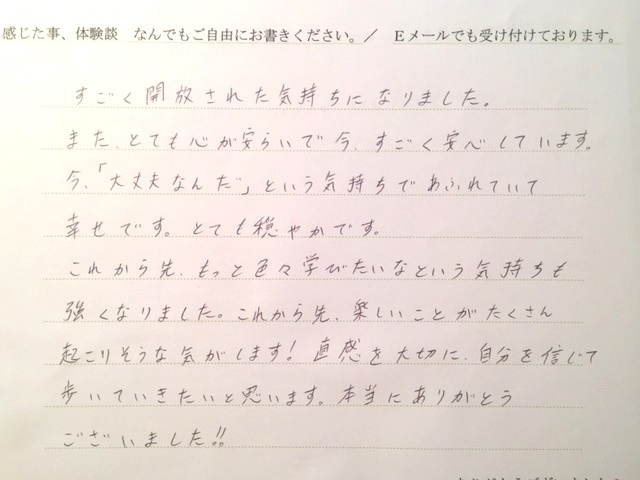 感じた事、体験談　なんでもご自由にお書きください。／　Ｅメールでも受け付けております。
すごく開放された気持ちになりました。
また、とても心が安らいで今、すごく安心しています。
今、「大丈夫なんだ」という気持ちであふれていて
幸せです。とても穏やかです。
これから先、もっと色々学びたいなという気持ちも
強くなりました。これから先、楽しいことがたくさん
起こりそうな気がします！直感を大切に、自分を信じて
歩いていきたいと思います。本当にありがとう
ございました!!